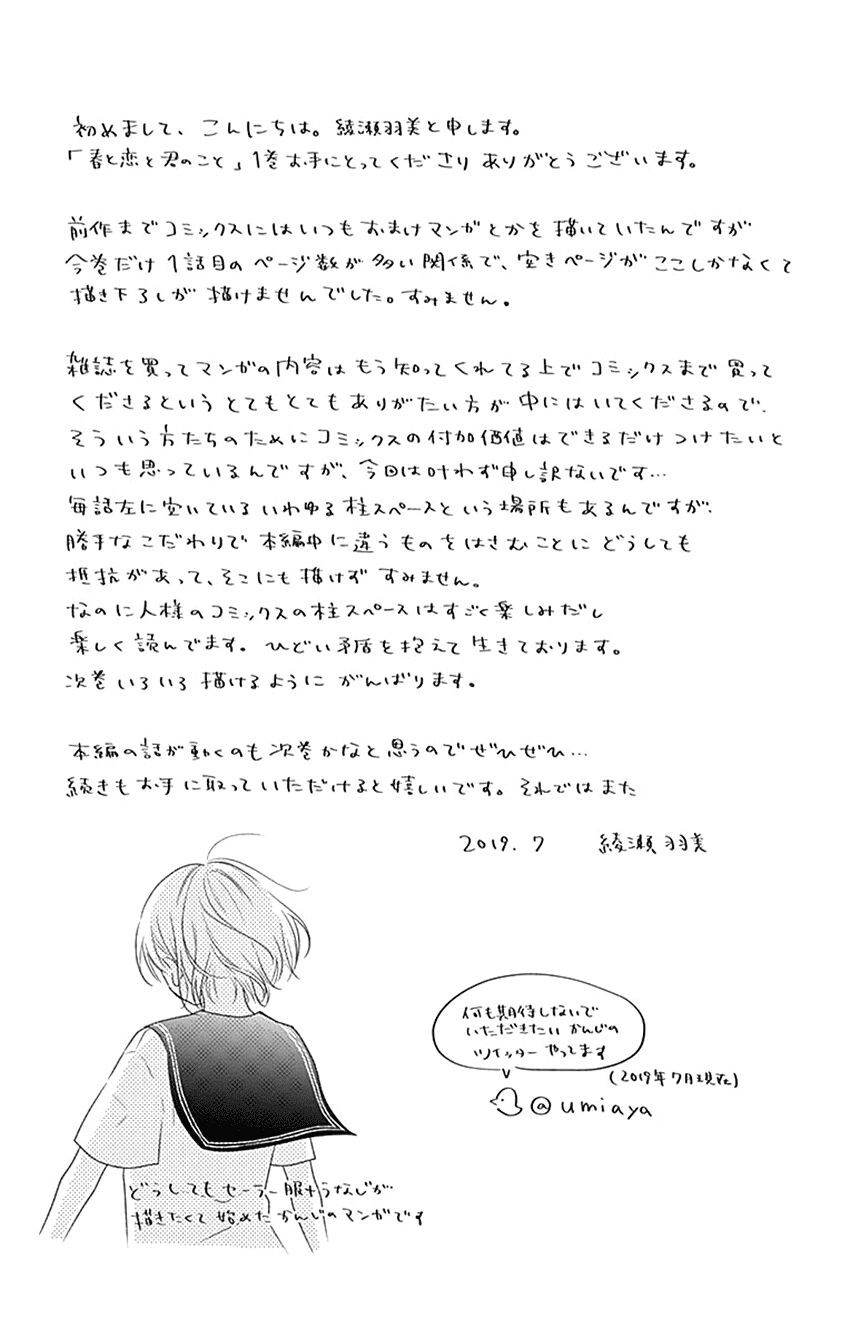 初めまして、こんにちは。綾瀬羽美と申します。
「春と恋と君のこと」1巻お手にとってくださりありがとうございます。
前作までコミックスにはいつもおまけマンガとかを描いていたんですが
今巻だけ1話目のページ数が多い関係で、空きページがここしかなくて
描き下ろしが描けませんでした。すみません。
雑誌を買ってマンガの内容はもう知ってくれてる上でコミックスまで買って
くださるというとてもとてもありがたい方が中にはいてくださるので、
そういう方たちのためにコミックスの付加価値はできるだけつけたいと
いつも思っているんですが、今回は叶わず申し訳ないです…
毎話左に空いているいわゆる柱スペースという場所もあるんですが、
勝手なこだわりで本編中に違うものをはさむことにどうしても
抵抗があって、そこにも描けずすみません。
なのに人様のコミックスの柱スペースはすごく楽しみだし
楽しく読んでます。ひどい矛盾を抱えて生きております。
次巻いろいろ描けるようにがんばります。
本編の話が動くのも次巻かなと思うのでぜひぜひ…
続きもお手に取っていただけると嬉しいです。それではまた
2019.7 綾瀬羽美
何も期待しないで
いただきたいかんじの
ツイッターやってます
(2019年7月現在)
@umiaya
どうしてもセーラー服+うなじが
描きたくて始めたかんじのマンガです